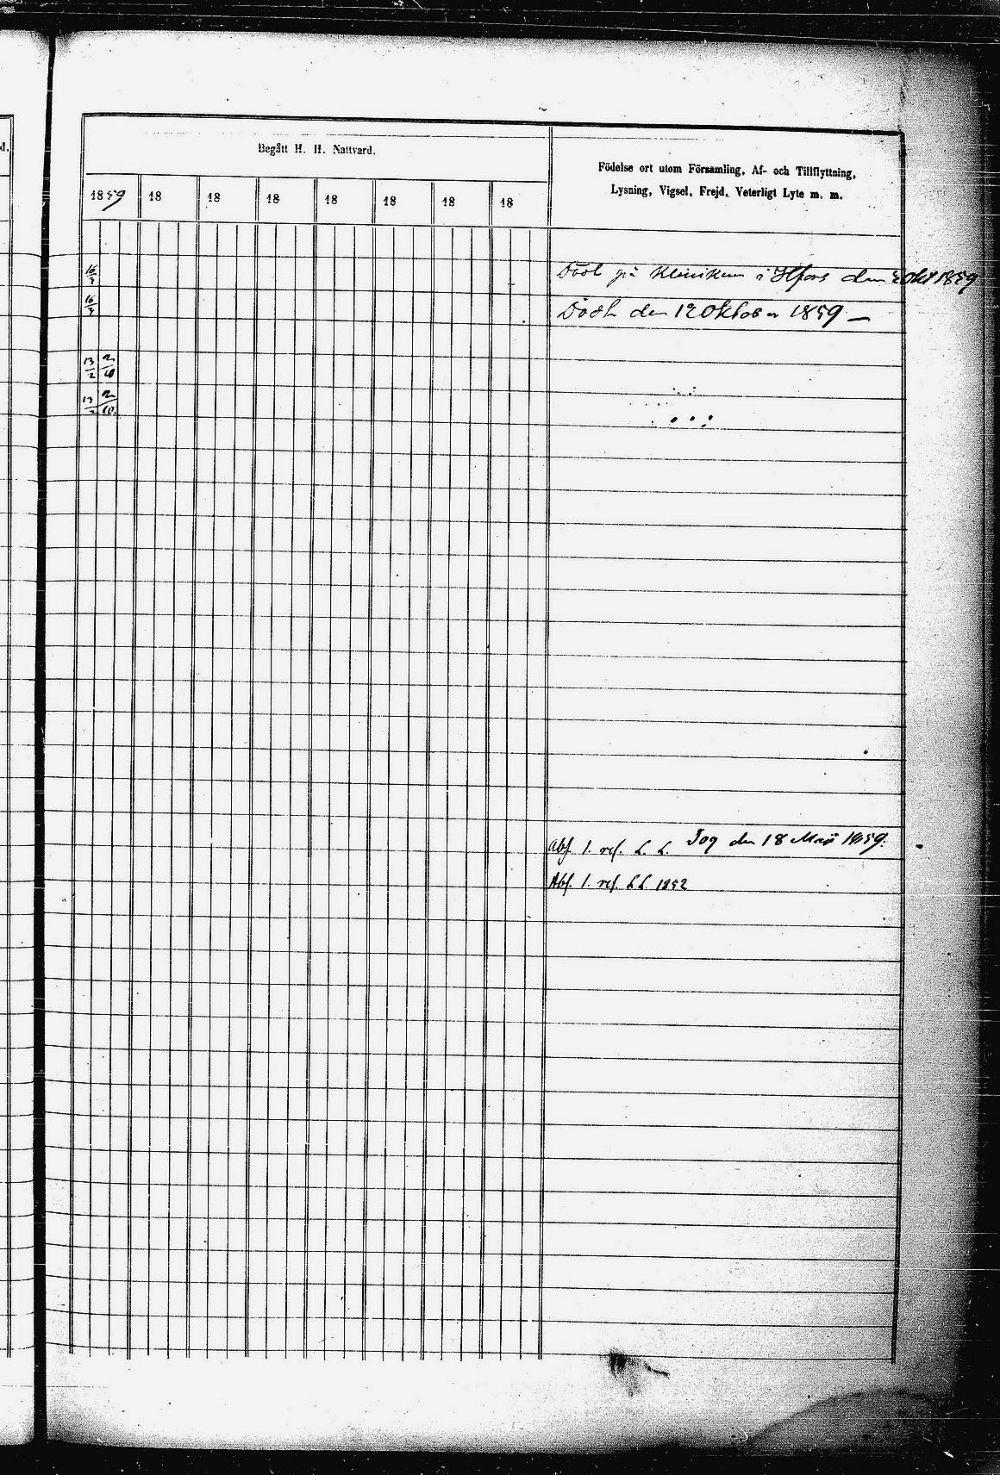 d.
Begått H. H. Nattvard.
Födelse ort utom Församling, Af- och Tillflyttning,
Lysning, Vigsel, Frejd, Veterligt Lyte m. m.
1859 18 18 18 18 18 18 18
16/3 Död på Kliniken i Hfors den Okt 1859
16/3 Död den 12 Oktober 1859 —
13/2 2/10
13/2 2/10
Abs. 1. ref. L. L. Tog den 18 Maii 1859.
Abs. 1. ref. L L. 1852